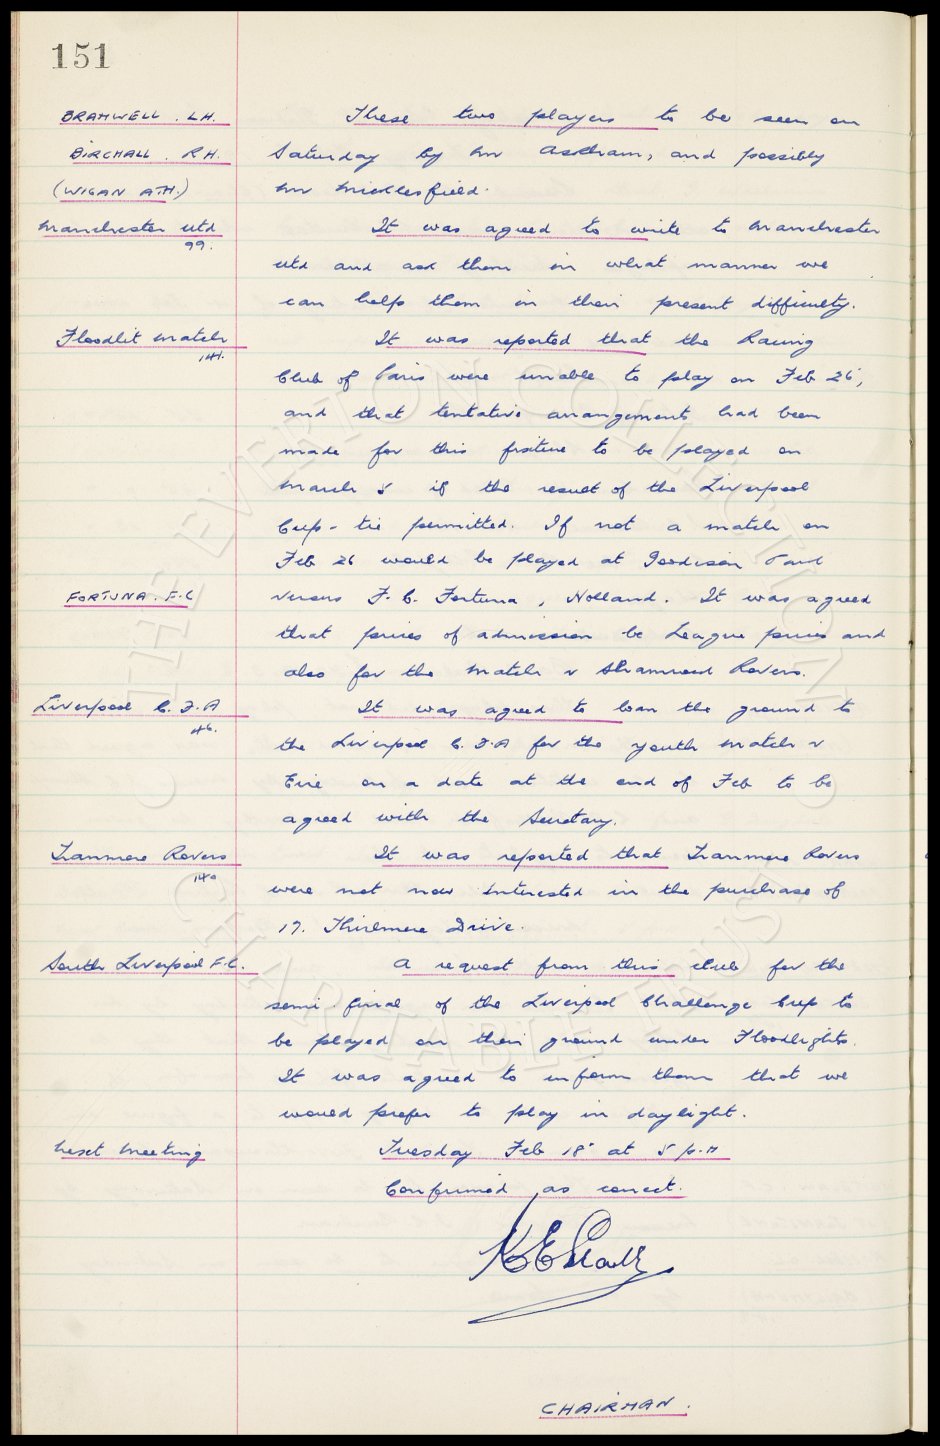 151
BRAMWELL. L.H. These two players to be seen on
BIRCHALL. R.H. Saturday by Mr Askham, and possibly
(WIGAN ATH.) Mr Micklesfield.
Manchester Utd It was agreed to write to Manchester
99.
Utd and ask them in what manner we
can help them in their present difficulty.
Floodlit Match It was reported that the Racing
141.
Club of Paris were unable to play on Feb 26,
and that tentative arrangements had been
made for this fixture to be played on
March 5 if the result of the Liverpool
Cup-tie permitted. If not a match on
Feb 26 would be played at Goodison Park
FORTUNA. F.C versus F.C. Fortuna, Holland. It was agreed
that prices of admission be League prices and
also for the match v Shamrock Rovers.
Liverpool C.F.A It was agreed to loan the ground to
46.
the Liverpool C.F.A for the youth match v
Eire on a date at the end of Feb to be
agreed with the Secretary.
Tranmere Rovers It was reported that Tranmere Rovers
140
were not now interested in the purchase of
17. Thirlmere Drive.
South Liverpool F.C. A request from this club for the
semi-final of the Liverpool Challenge Cup to
be played on their ground under Floodlights.
It was agreed to inform them that we
would prefer to play in daylight.
Next Meeting Tuesday Feb 18 at 5 p.m
Confirmed as correct.
CHAIRMAN.
THE EVERTON COLLECTION
CHARITABLE TRUST